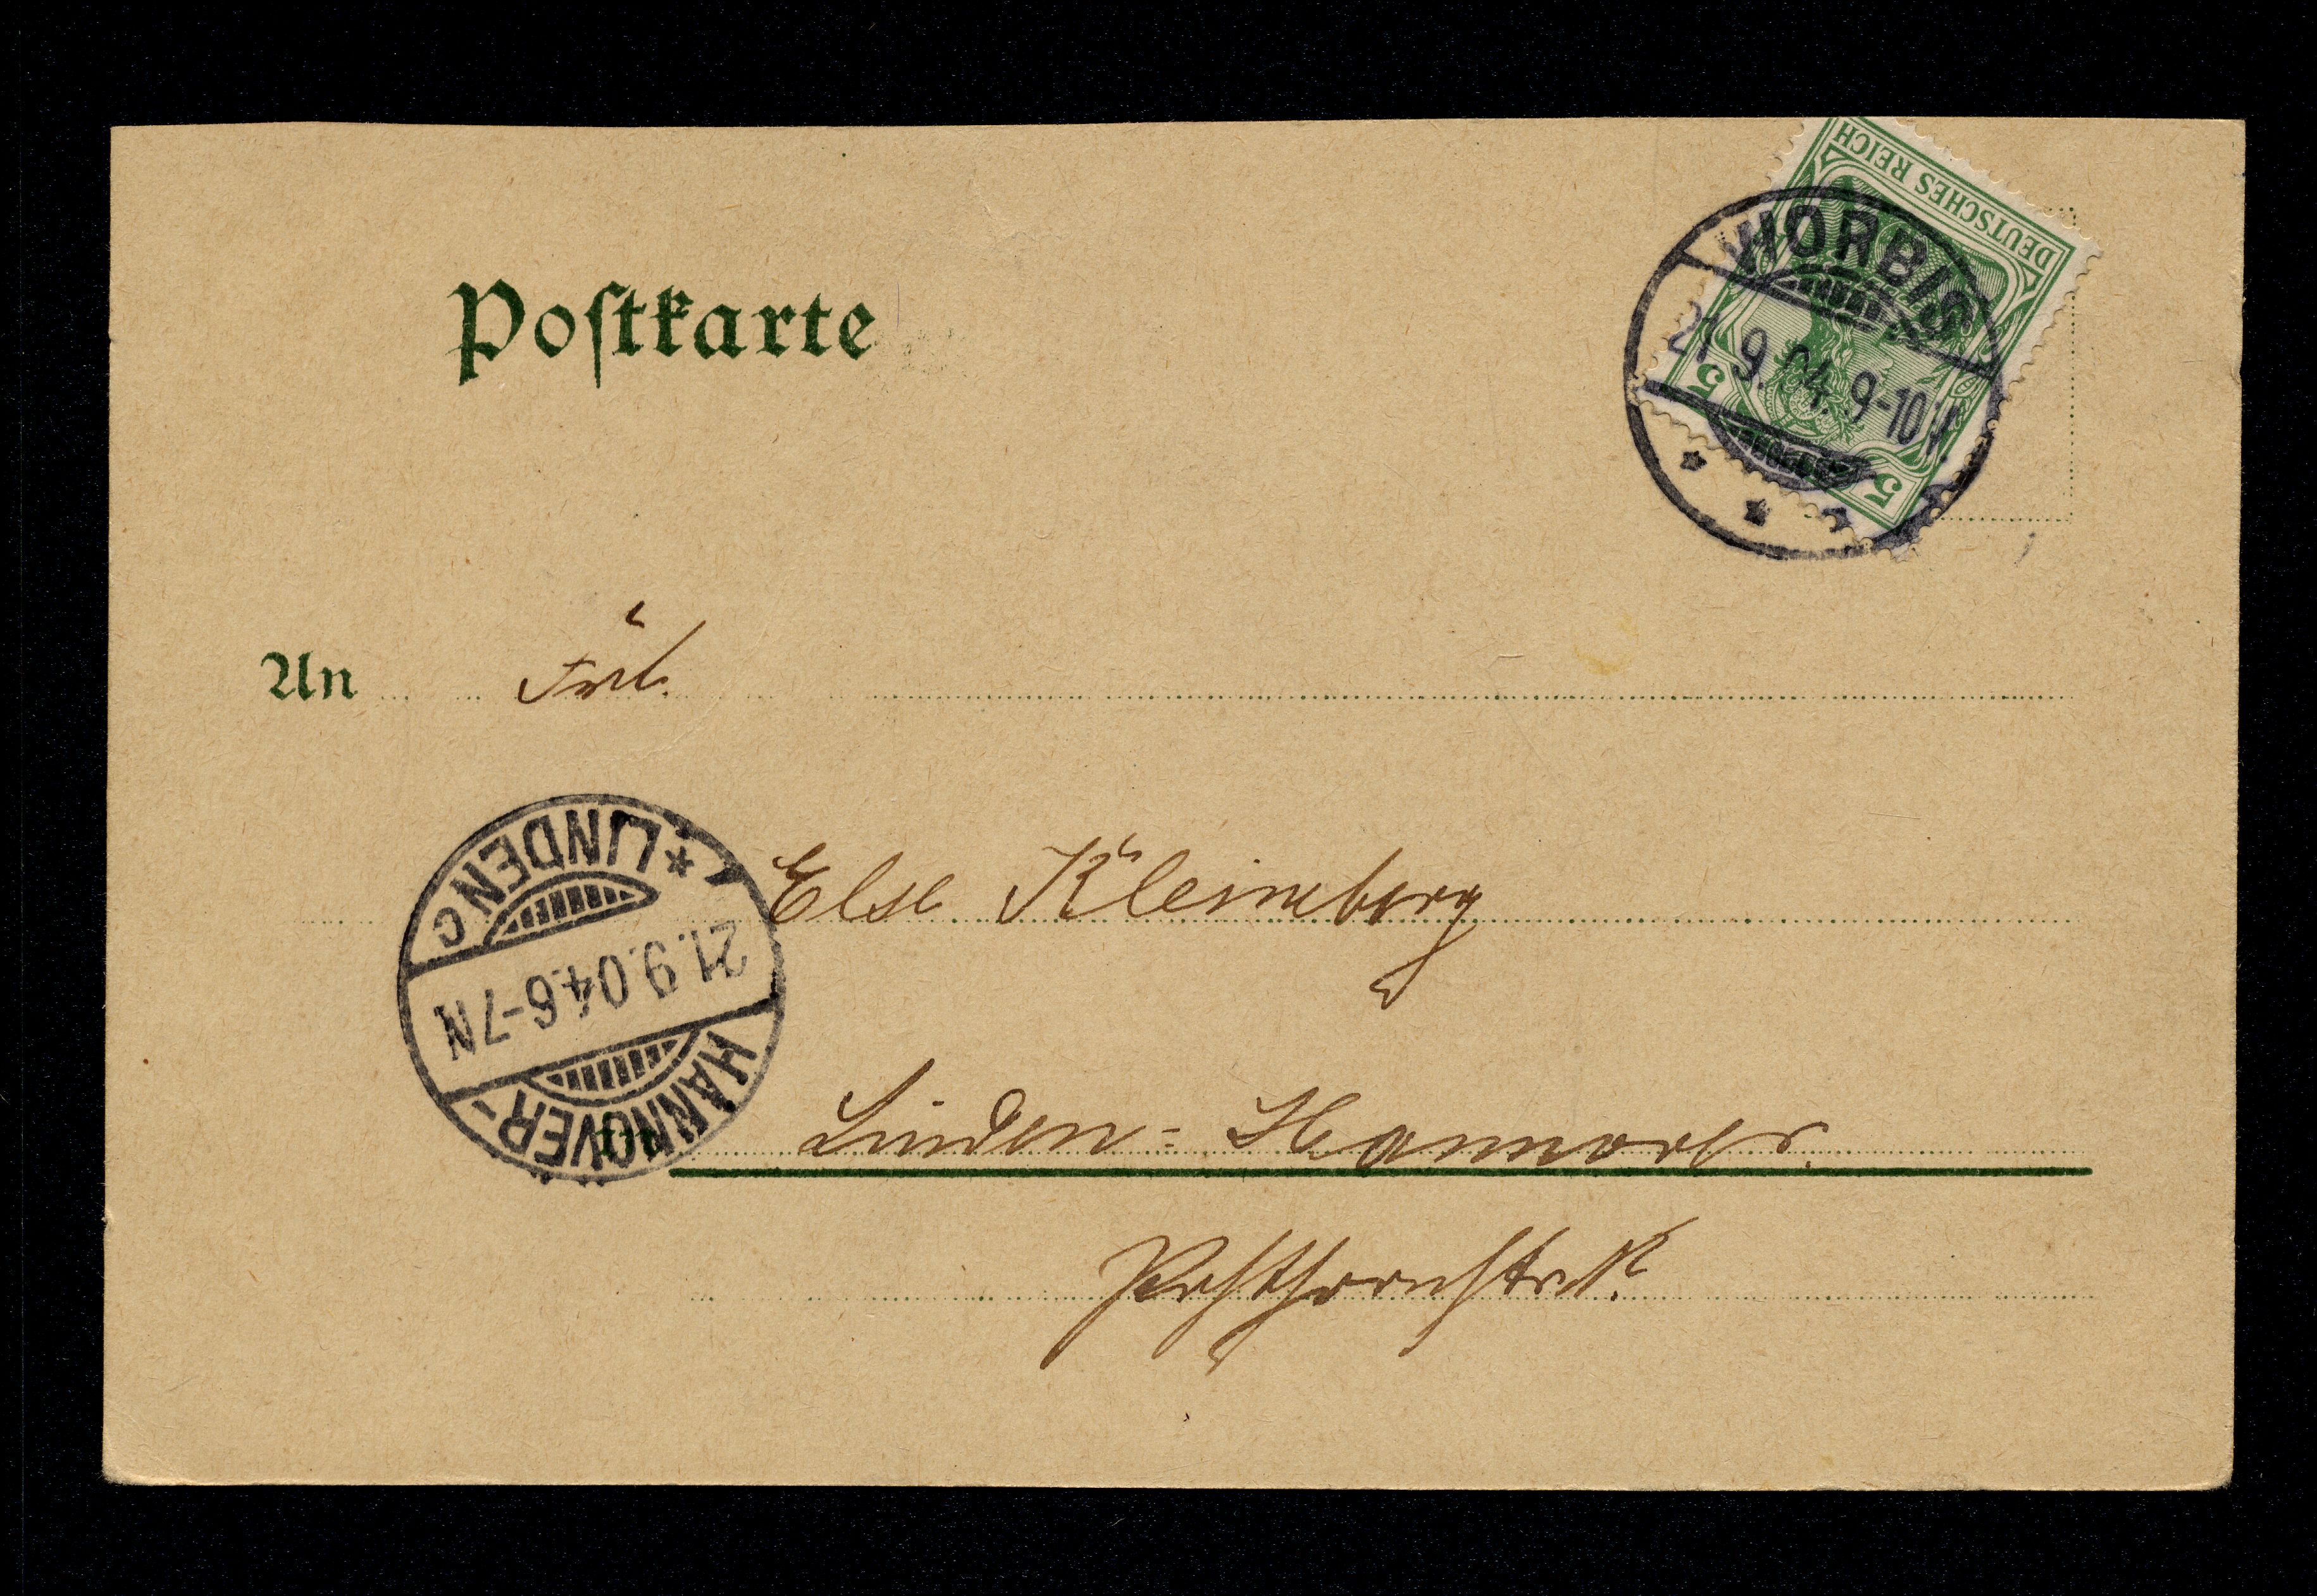 DEUTSCHES REICH
5 5
WORBIS
21.9.04.9-10V.
Postkarte
An Frl.
* LINDEN C
21.9.04.6-7N
HANNOVER
Else Kleineberg
in Linden=Hannover.
Posthornstr.